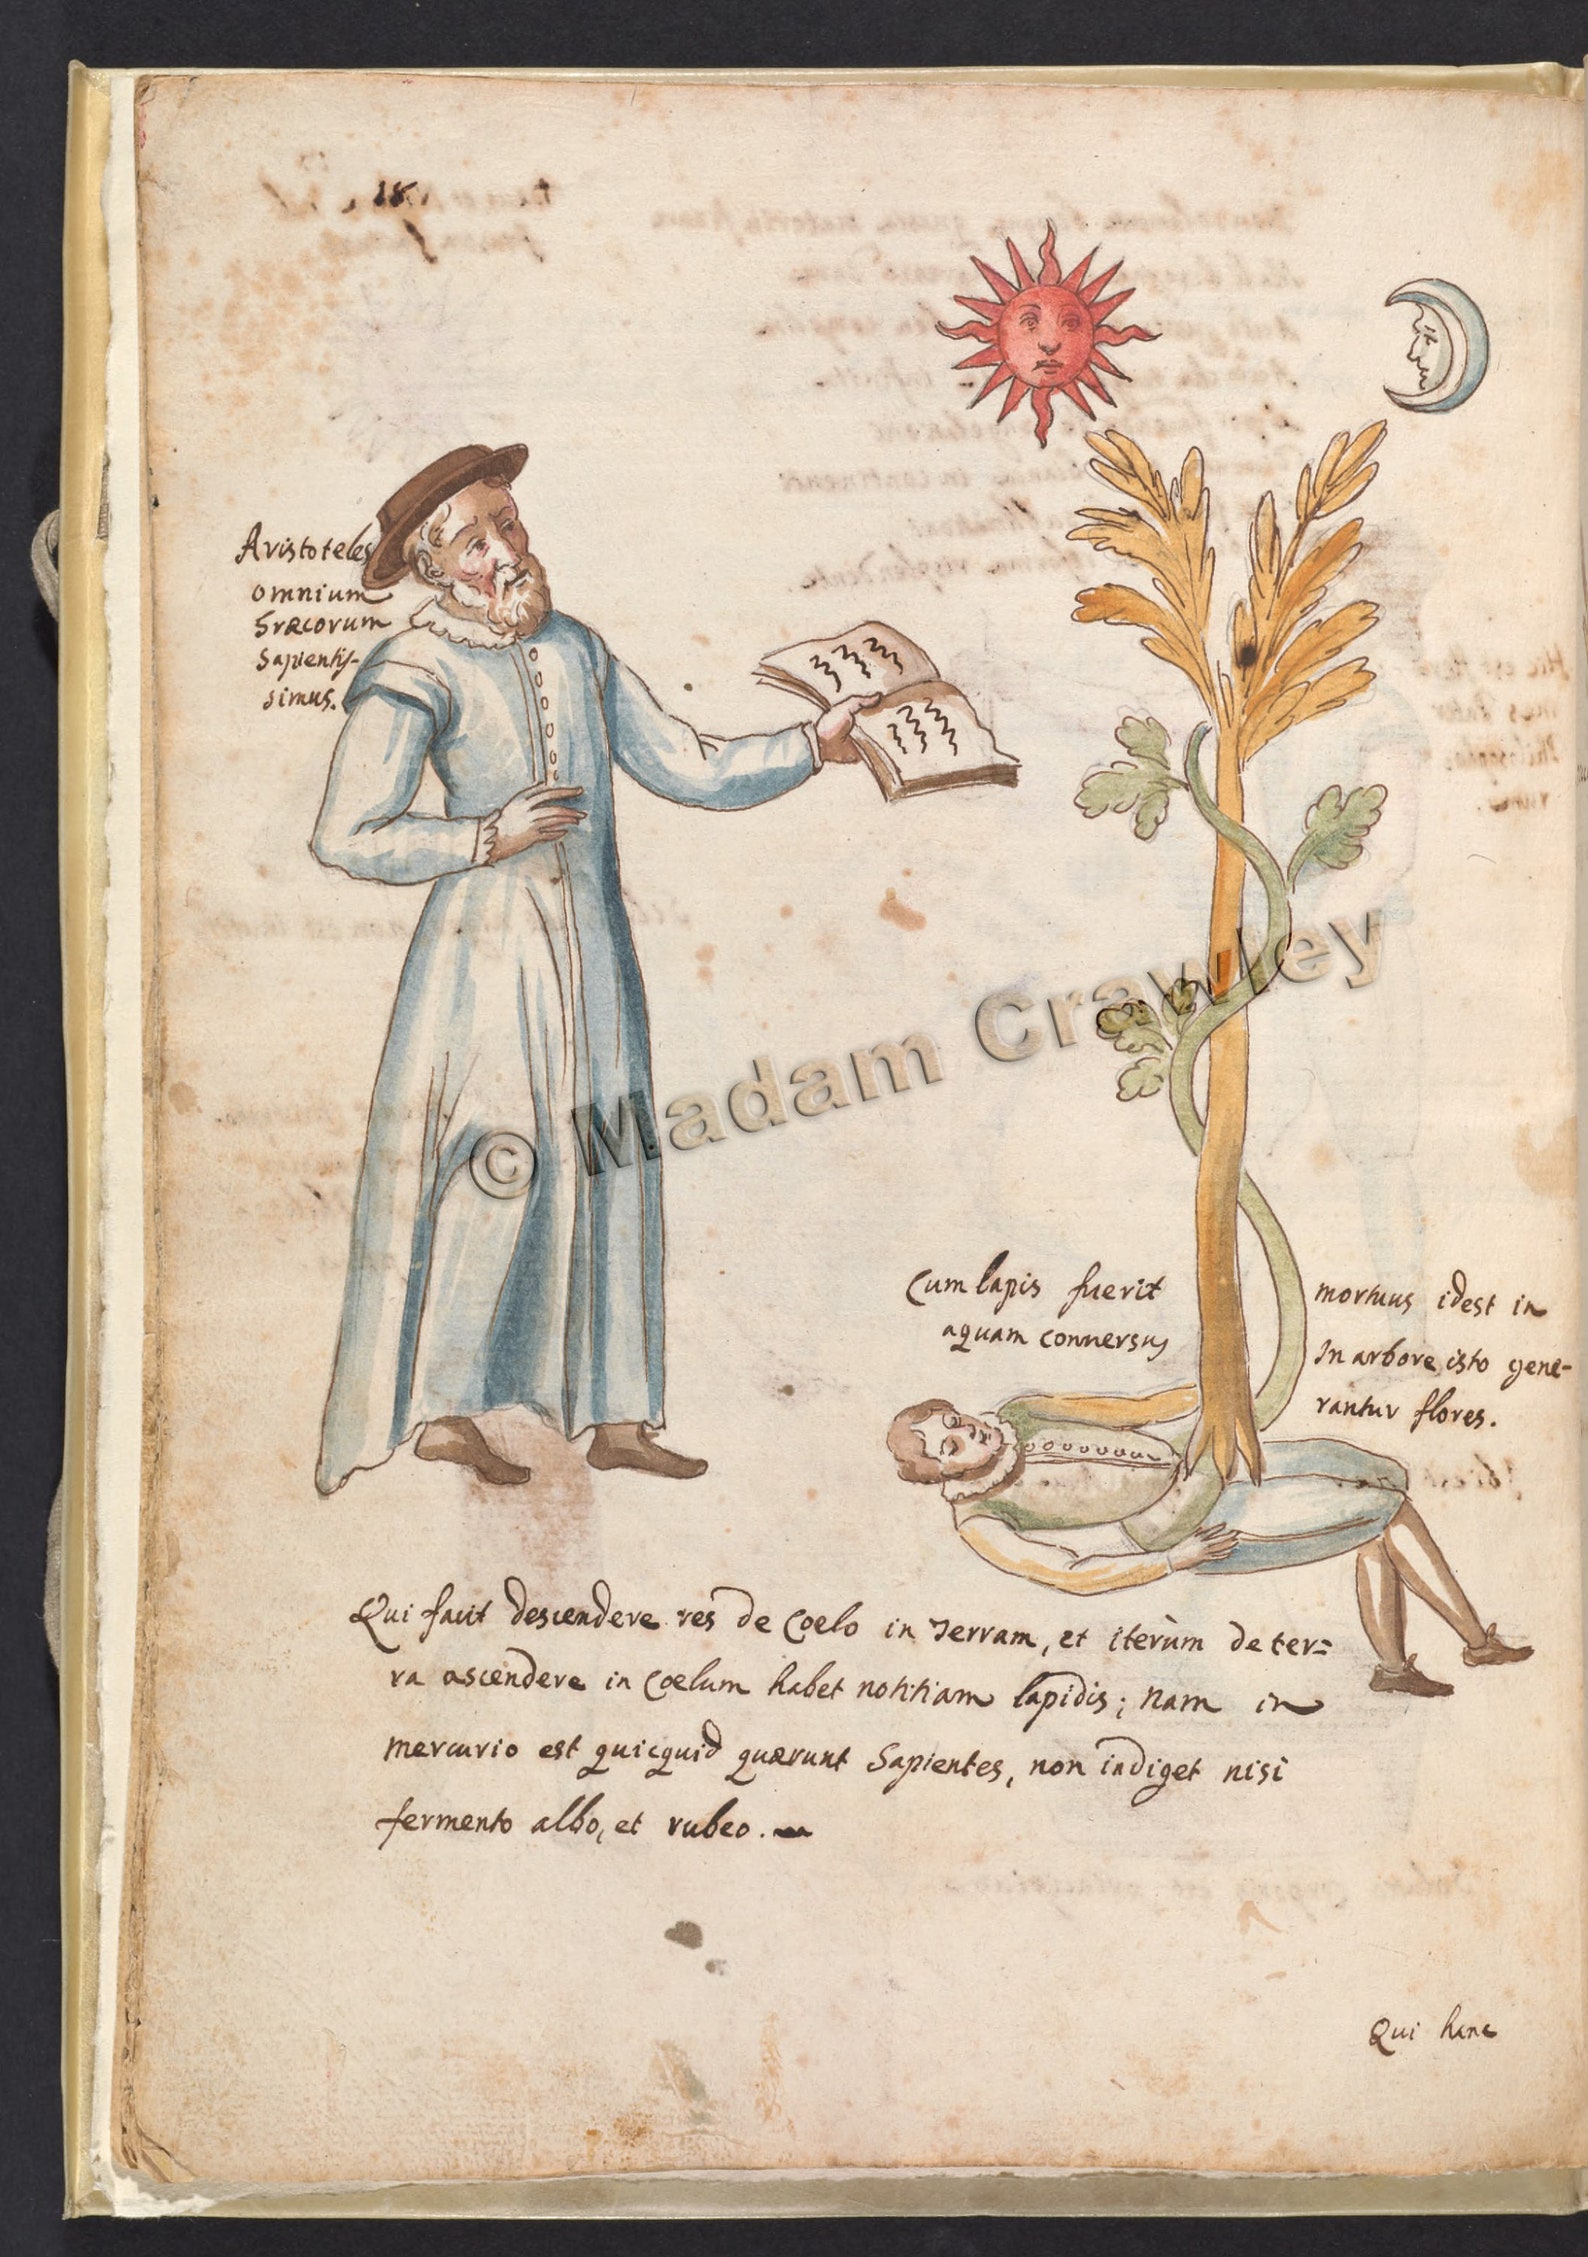 18
Aristoteles
omnium
Græcorum
Sapientis-
simus.
Cum lapis fuerit mortuus idest in
aquam conuersus In arbore isto gene-
rantur flores.
Qui facit descendere res de Coelo in Terram, et iterùm de ter=
ra ascendere in Coelum habet notitiam lapidis; Nam in
mercurio est quicquid quærunt Sapientes, non indiget nisi
fermento albo, et rubeo.
Qui hanc
© Madam Crawley